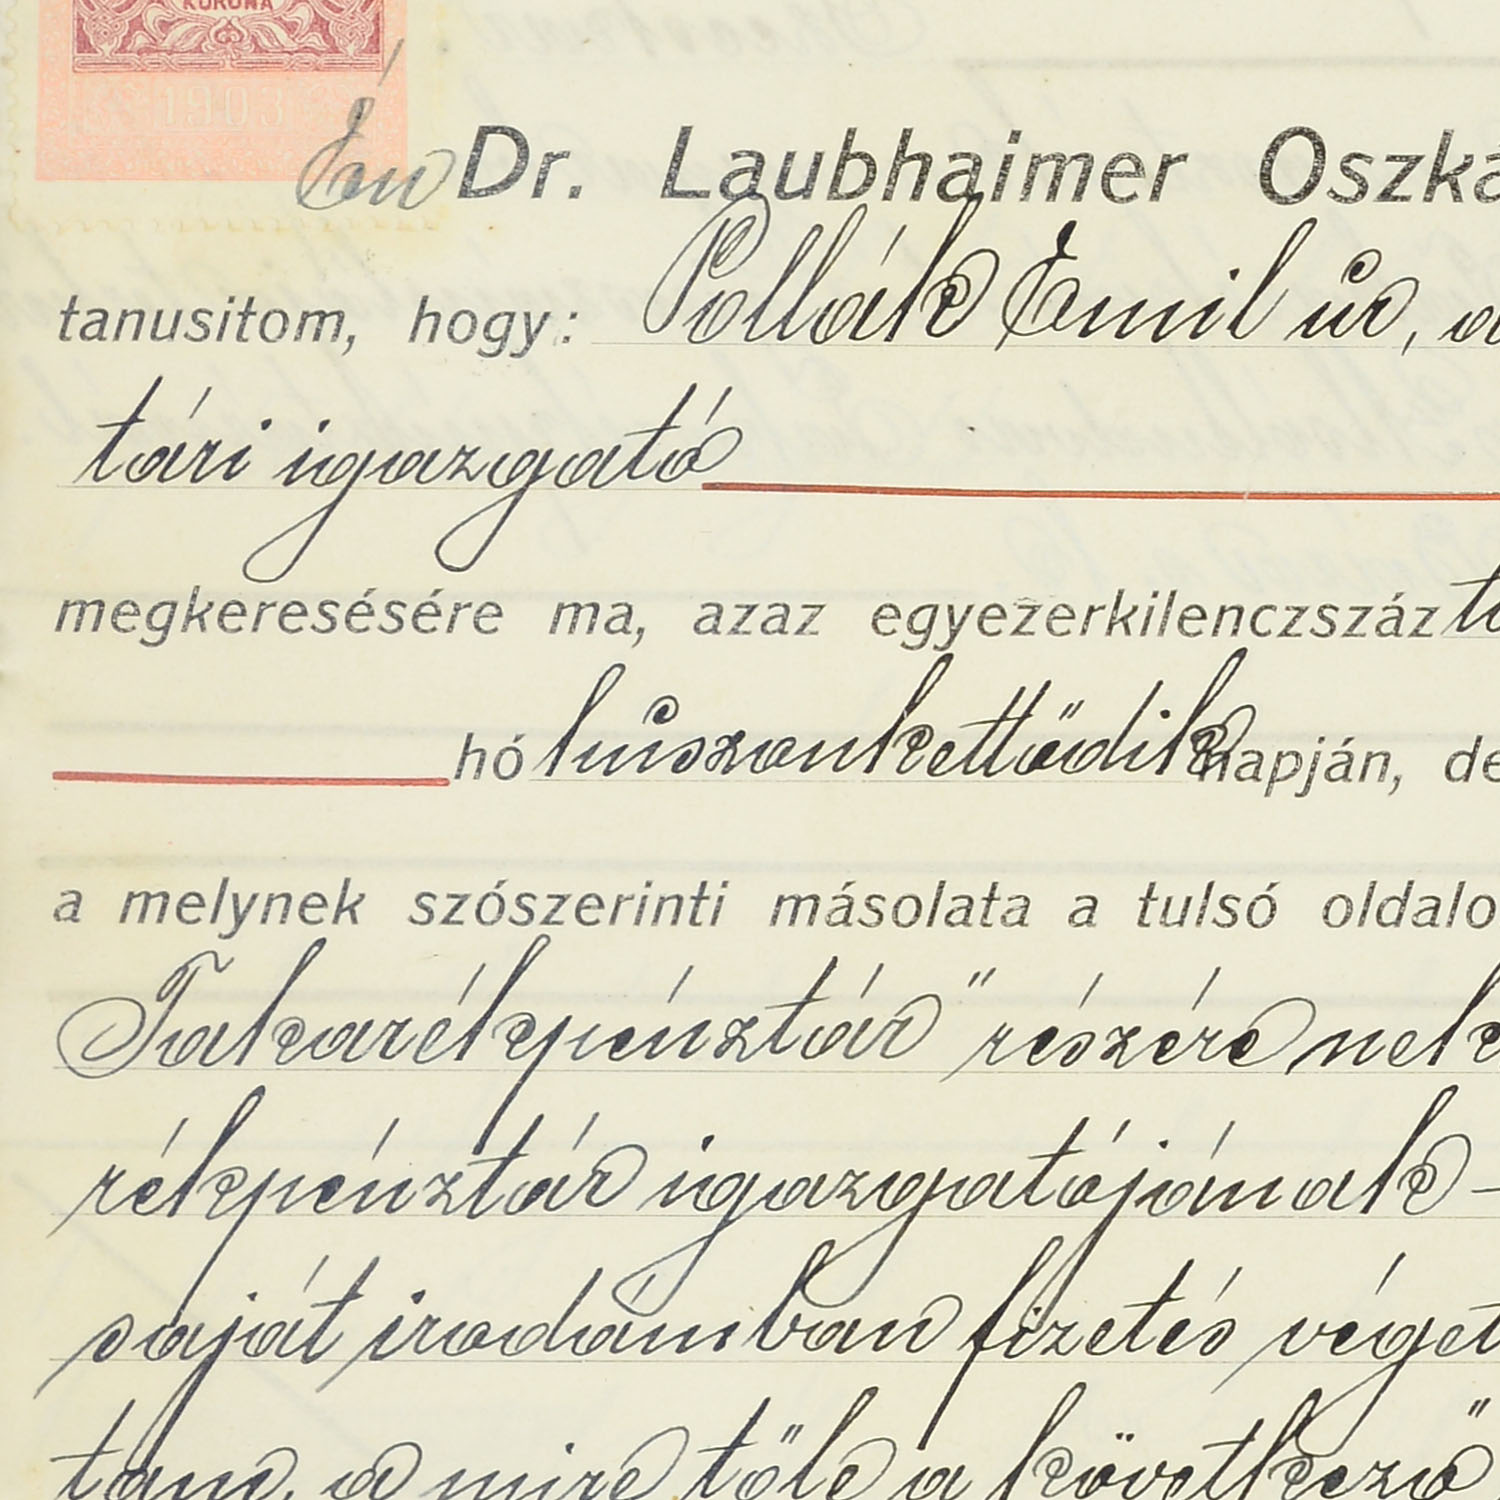 KORONA
1903
Én Dr. Laubhaimer Oszká
tanusitom, hogy: Pollák Emil úr, a
tári igazgató
megkeresésére ma, azaz egyezerkilenczszáz
hó huszonkettődik napján, de
a melynek szószerinti másolata a tulsó oldalo
Takarékpénztár" részére nek
rékpénztár igazgatójának -
saját irodámban fizetés véget
tam, a mire tőle a következő